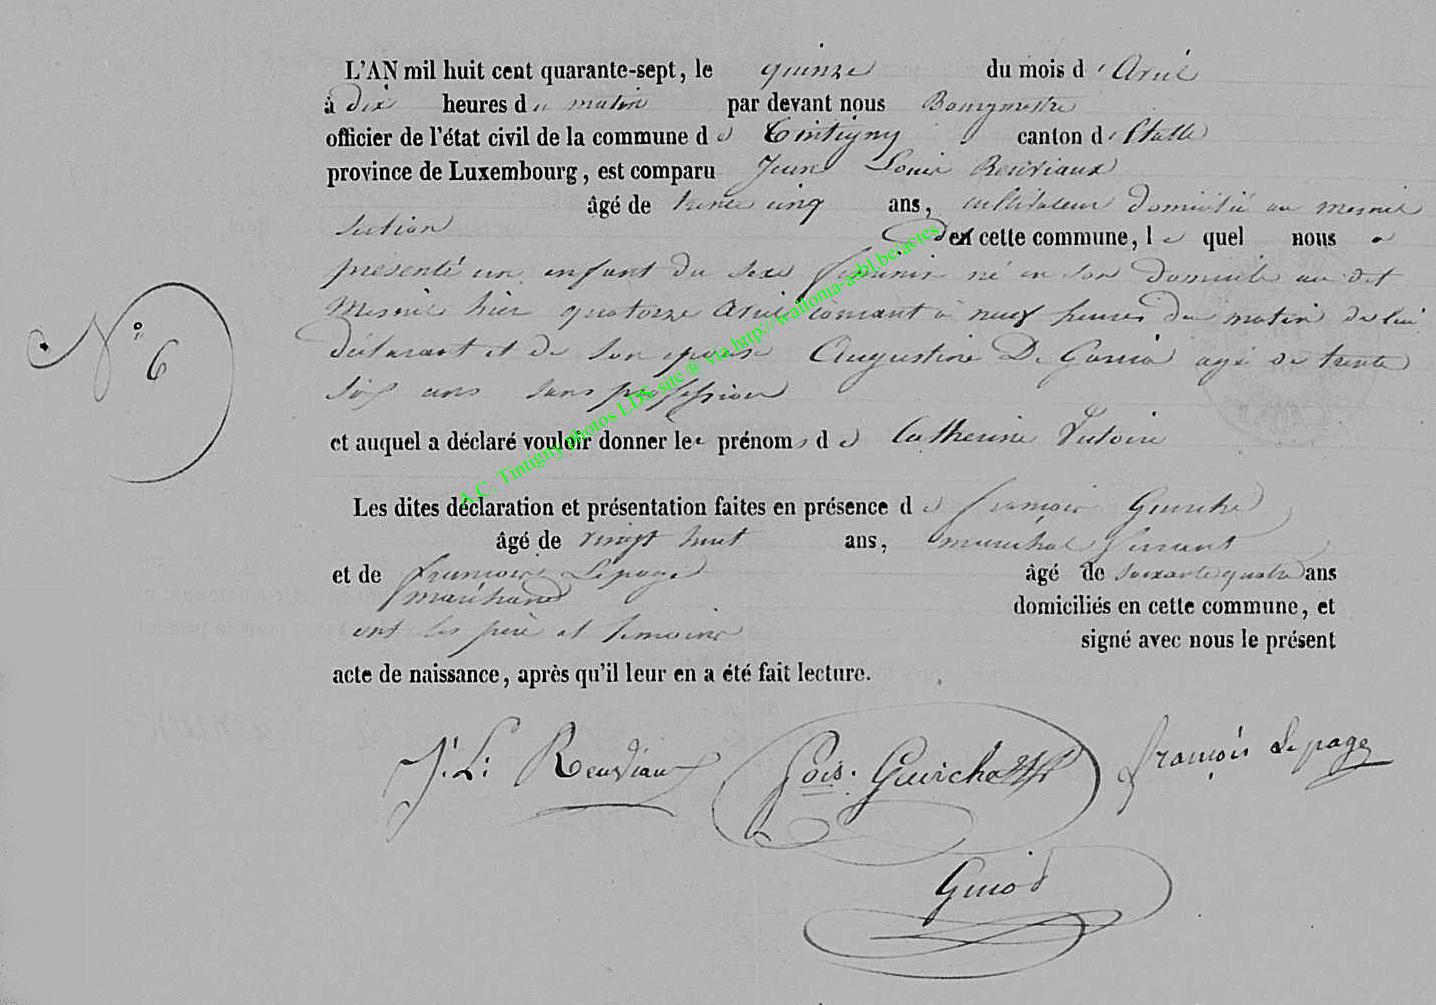 L'AN mil huit cent quarante-sept, le quinze du mois d'Avril
à dix heures du matin par devant nous Bourgmestre
officier de l'état civil de la commune de Tintigny canton d'Etalle
province de Luxembourg, est comparu Jean Louis Reuviaux
âgé de trente cinq ans, cultivateur domicilié au mesnil
section de cette commune, lequel nous a
présenté un enfant du sexe feminin né en son domicile au dit
Mesnil hier quatorze avril courant à neuf heures du matin de lui
déclarant et de son epouse Augustine De Goria agé de trente
six ans sans profession
et auquel a déclaré vouloir donner les prénoms de Catherine Victoire
N° 6
Les dites déclaration et présentation faites en présence de françois Guirche
âgé de vingt huit ans, maréchal ferrant
et de francois Lepage âgé de soixante quatre ans
marchand domiciliés en cette commune, et
ont les père et temoins signé avec nous le présent
acte de naissance, après qu'il leur en a été fait lecture.
J. L. Reuviaux fois. Guirche françois Lepage
Guiot
A.C. Tintigny photos LDS, site ® via http://wallonia-asbl.be/actes